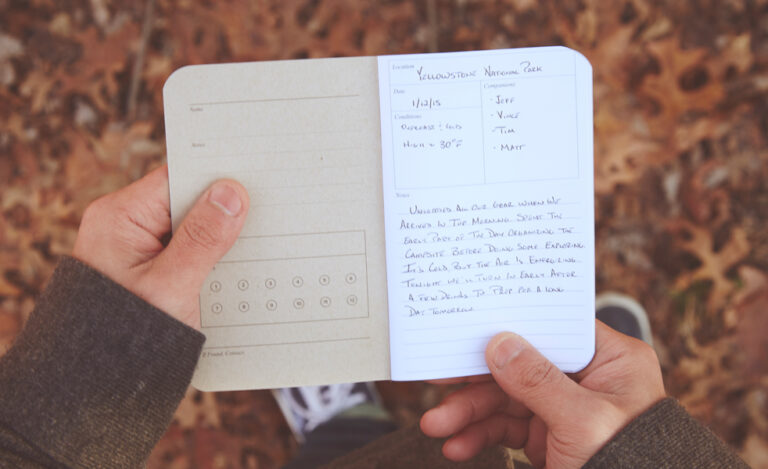 Name
Notes
1 2 3 4 5 6
7 8 9 10 11 12
If Found, Contact:
Location
Yellowstone National Park
Date
1/12/15
Conditions
High = 30°F
Companions
- Jeff
- Vince
- Tim
- Matt
Notes
Unloaded all our gear when we
arrived in the morning. Spent the
early part of the day organizing the
campsite before doing some exploring.
It's cold, but the air is energizing.
Tonight we'll turn in early after
a few drinks to prep for a long
day tomorrow.